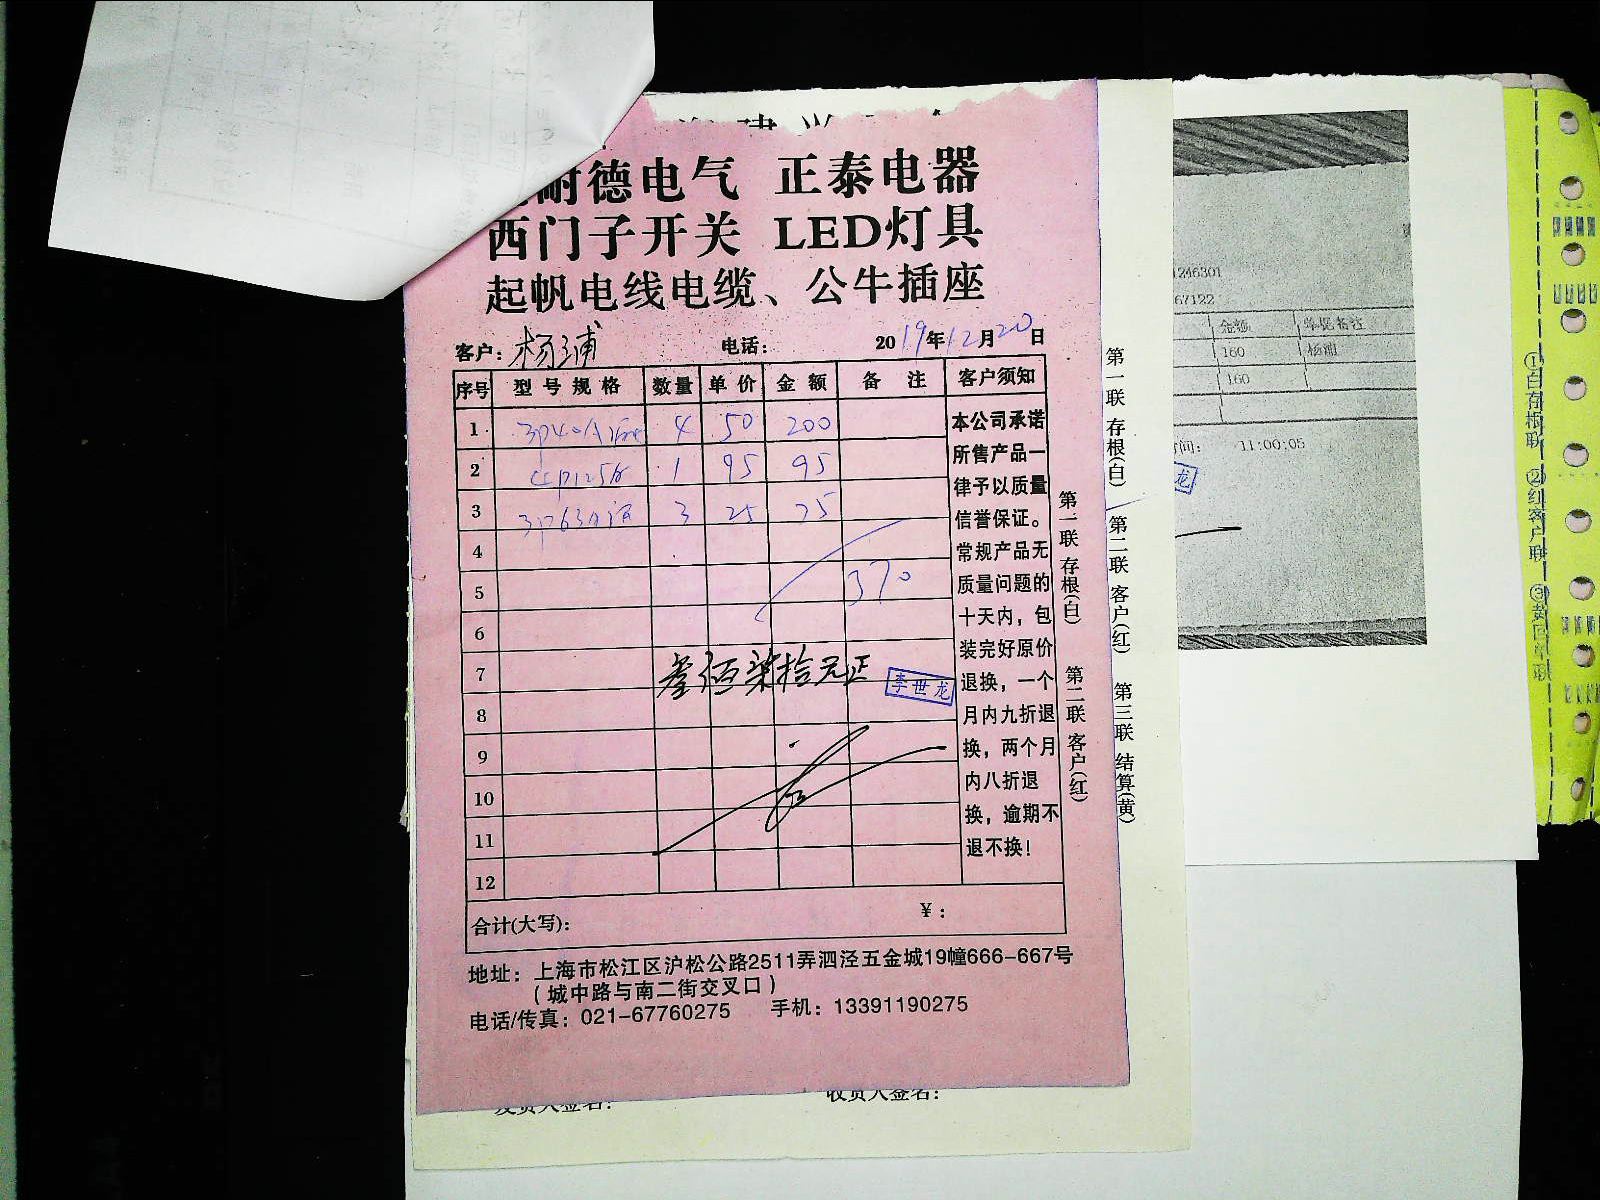 耐德电气 正泰电器
西门子开关 LED灯具
起帆电线电缆、公牛插座
客户：杨浦 电话： 2019年12月20日
序号 型号规格 数量 单价 金额 备注 客户须知
1 3P40A 4 50 200
2 1 95 95
3 3P63A 3 25 75
4
5 370
6
7 叁佰柒拾元正 李世龙
8
9
10
11
12
本公司承诺
所售产品一
律予以质量
信誉保证。
常规产品无
质量问题的
十天内，包
装完好原价
退换，一个
月内九折退
换，两个月
内八折退
换，逾期不
退不换！
合计(大写)： ¥：
地址：上海市松江区沪松公路2511弄泗泾五金城19幢666-667号
(城中路与南二街交叉口)
电话/传真：021-67760275 手机：13391190275
第一联 存根(白) 第二联 客户(红)
第一联 存根(白) 第二联 客户(红) 第三联 结算(黄)
收货人签名：
246301
67122
金额 单据备注
160 杨浦
160
11:00:05
龙
①白存根联 ②红客户联